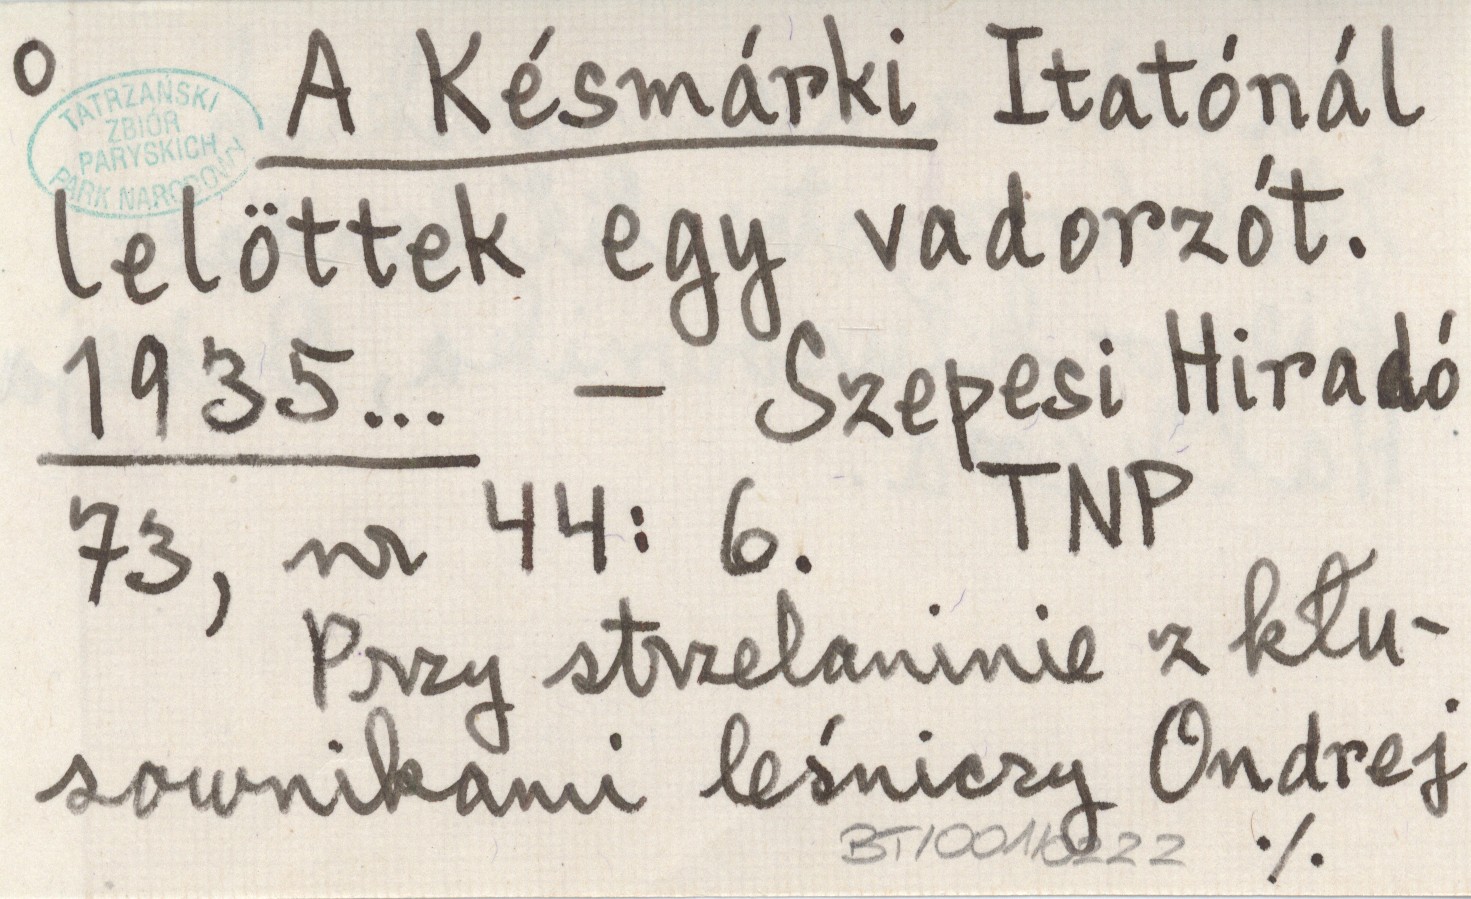 o
TATRZAŃSKI
ZBIÓR
PARYSKICH
PARK NARODOWY
A Késmárki Itatónál
lelöttek egy vadorzót.
1935... — Szepesi Hiradó
73, nr 44: 6. TNP
Przy strzelaninie z kłu-
sownikami leśniczy Ondrej
BT/001/6222
./.